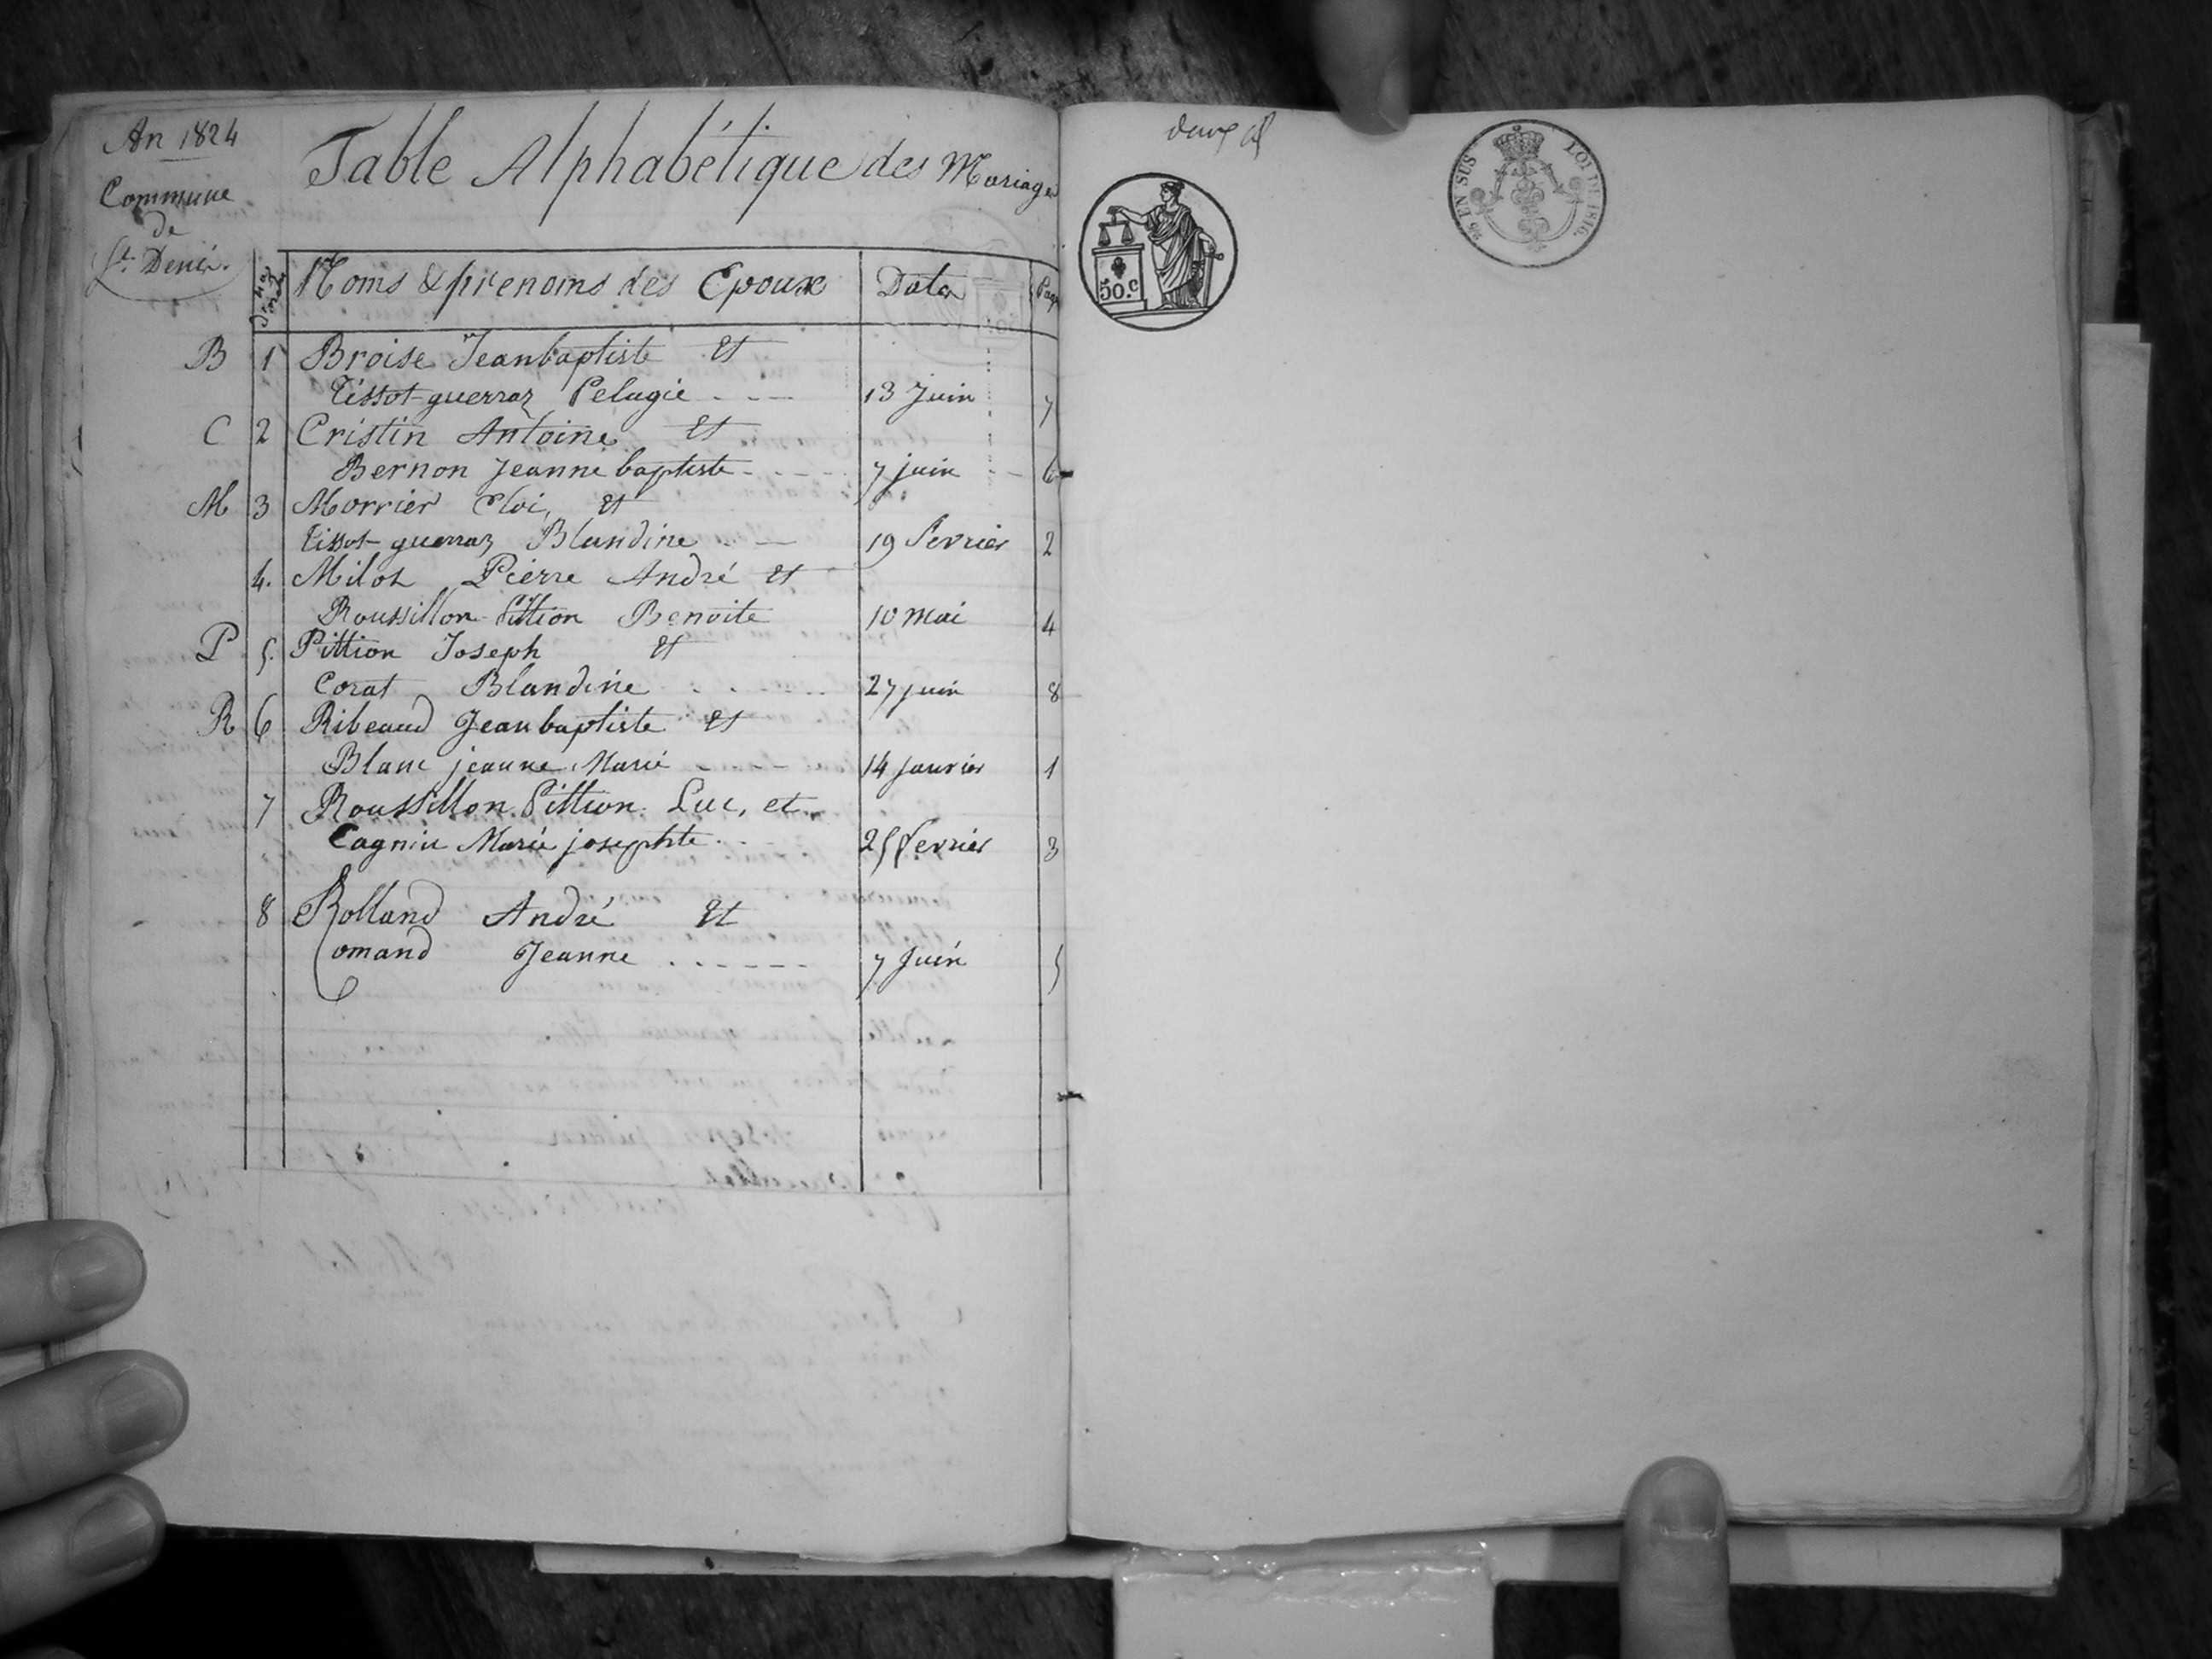 An 1824
Commune
de
St. Denis.
Table Alphabétique des Mariages
Noms & prenoms des Epoux Date Page
B 1 Broise Jeanbaptiste et
Tissot-guerraz Pelagie 13 Juin 7
C 2 Cristin Antoine et
Bernon Jeanne baptiste 7 juin 6
M 3 Morrier Eloi, et
Tissot-guerraz Blandine 19 fevrier 2
4. Milot Pierre André et
Roussillon-Pittion Benoite 10 mai 4
P 5. Pittion Joseph et
Corat Blandine 27 juin 8
R 6 Ribeaud Jean baptiste et
Blanc jeanne Marie 14 janvier 1
7 Roussillon Pittion Luc, et
Cagnin Marie josephte 25 fevrier 3
8 Rolland André et
Comand Jeanne 7 Juin 5
50.c
EN SUS LOI DE 1816.